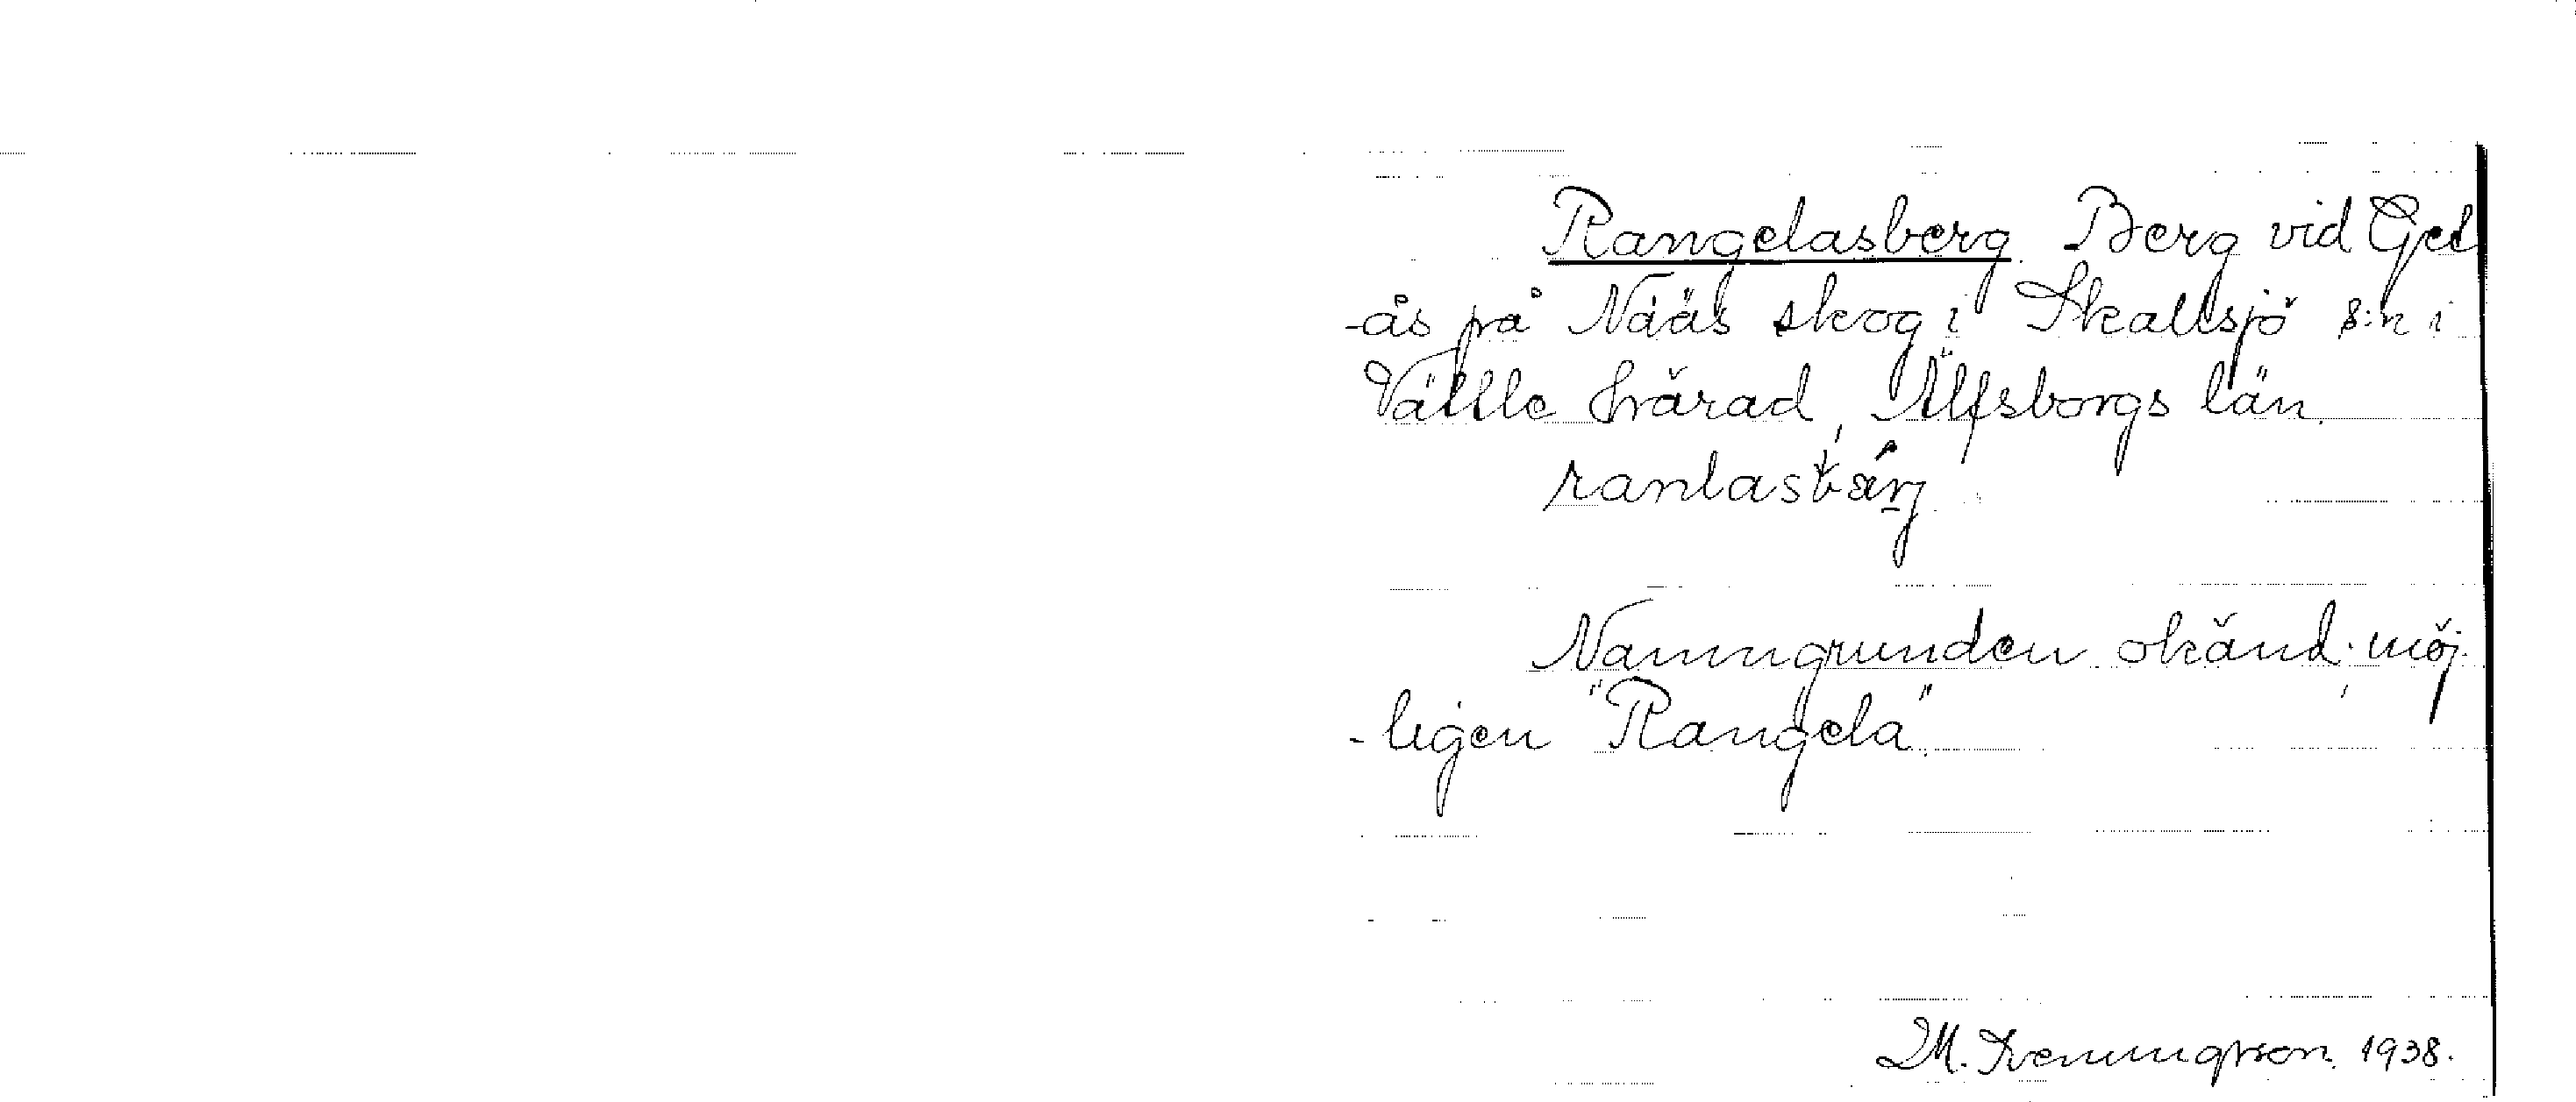 Rangelasberg. Berg vid Ged
-ås på Nääs skog i Skallsjö s:n i
Vättle härad, Älfsborgs län.
ranlasbärj
Namngrunden okänd; möj-
-ligen "Rangela".
M. Svenungsson. 1938.